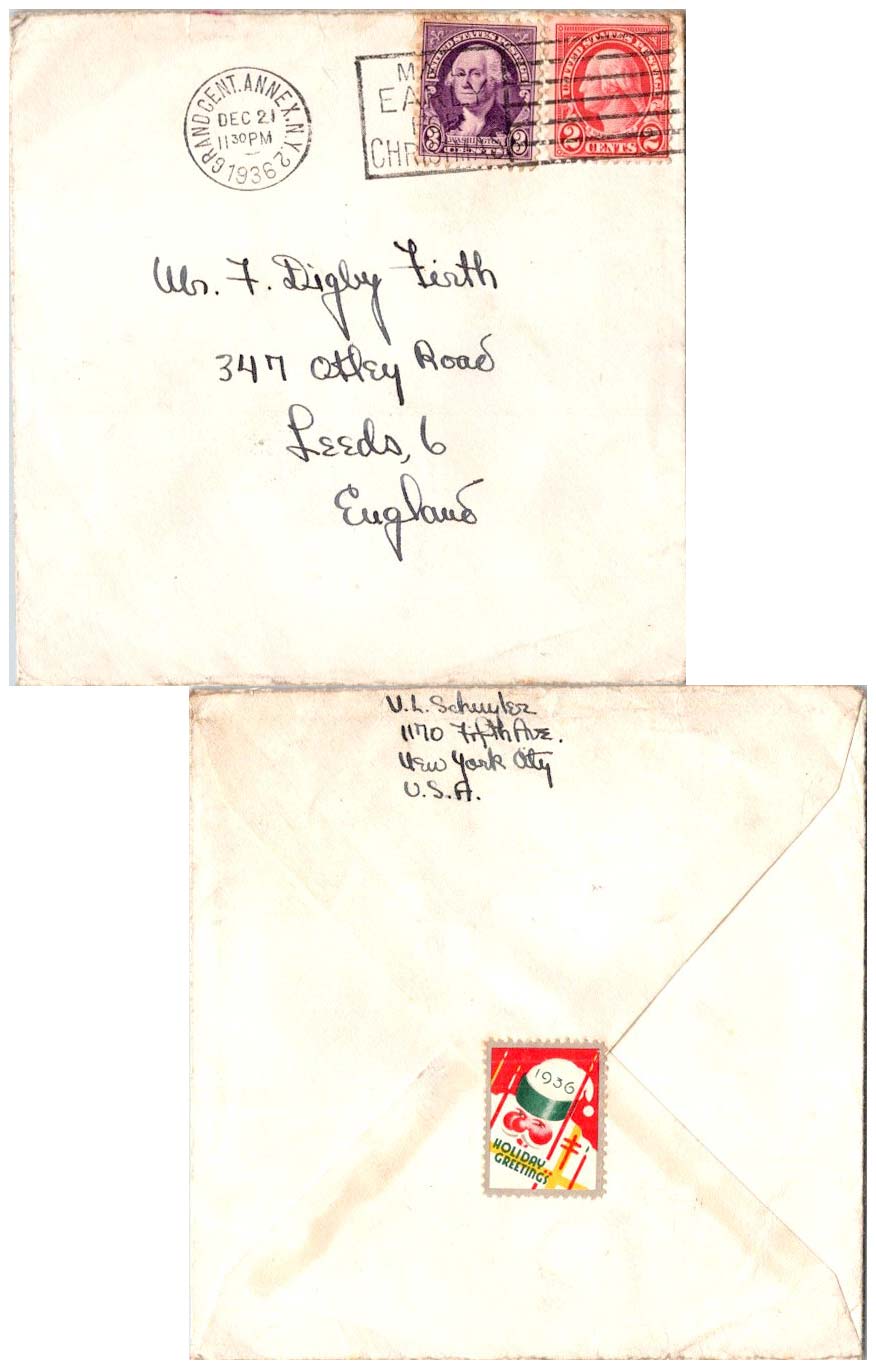 GRAND CENT. ANNEX. N.Y. 2
DEC 21
11 30 PM
1936
CHRIST
UNITED STATES POSTAGE
3 WASHINGTON 3
CENTS
UNITED STATES POSTAGE
2 CENTS 2
Mr. F. Digby Firth
347 Otley Road
Leeds, 6
England
V. L. Schuyler
1170 Fifth Ave.
New York City
U.S.A.
1936
HOLIDAY
GREETINGS